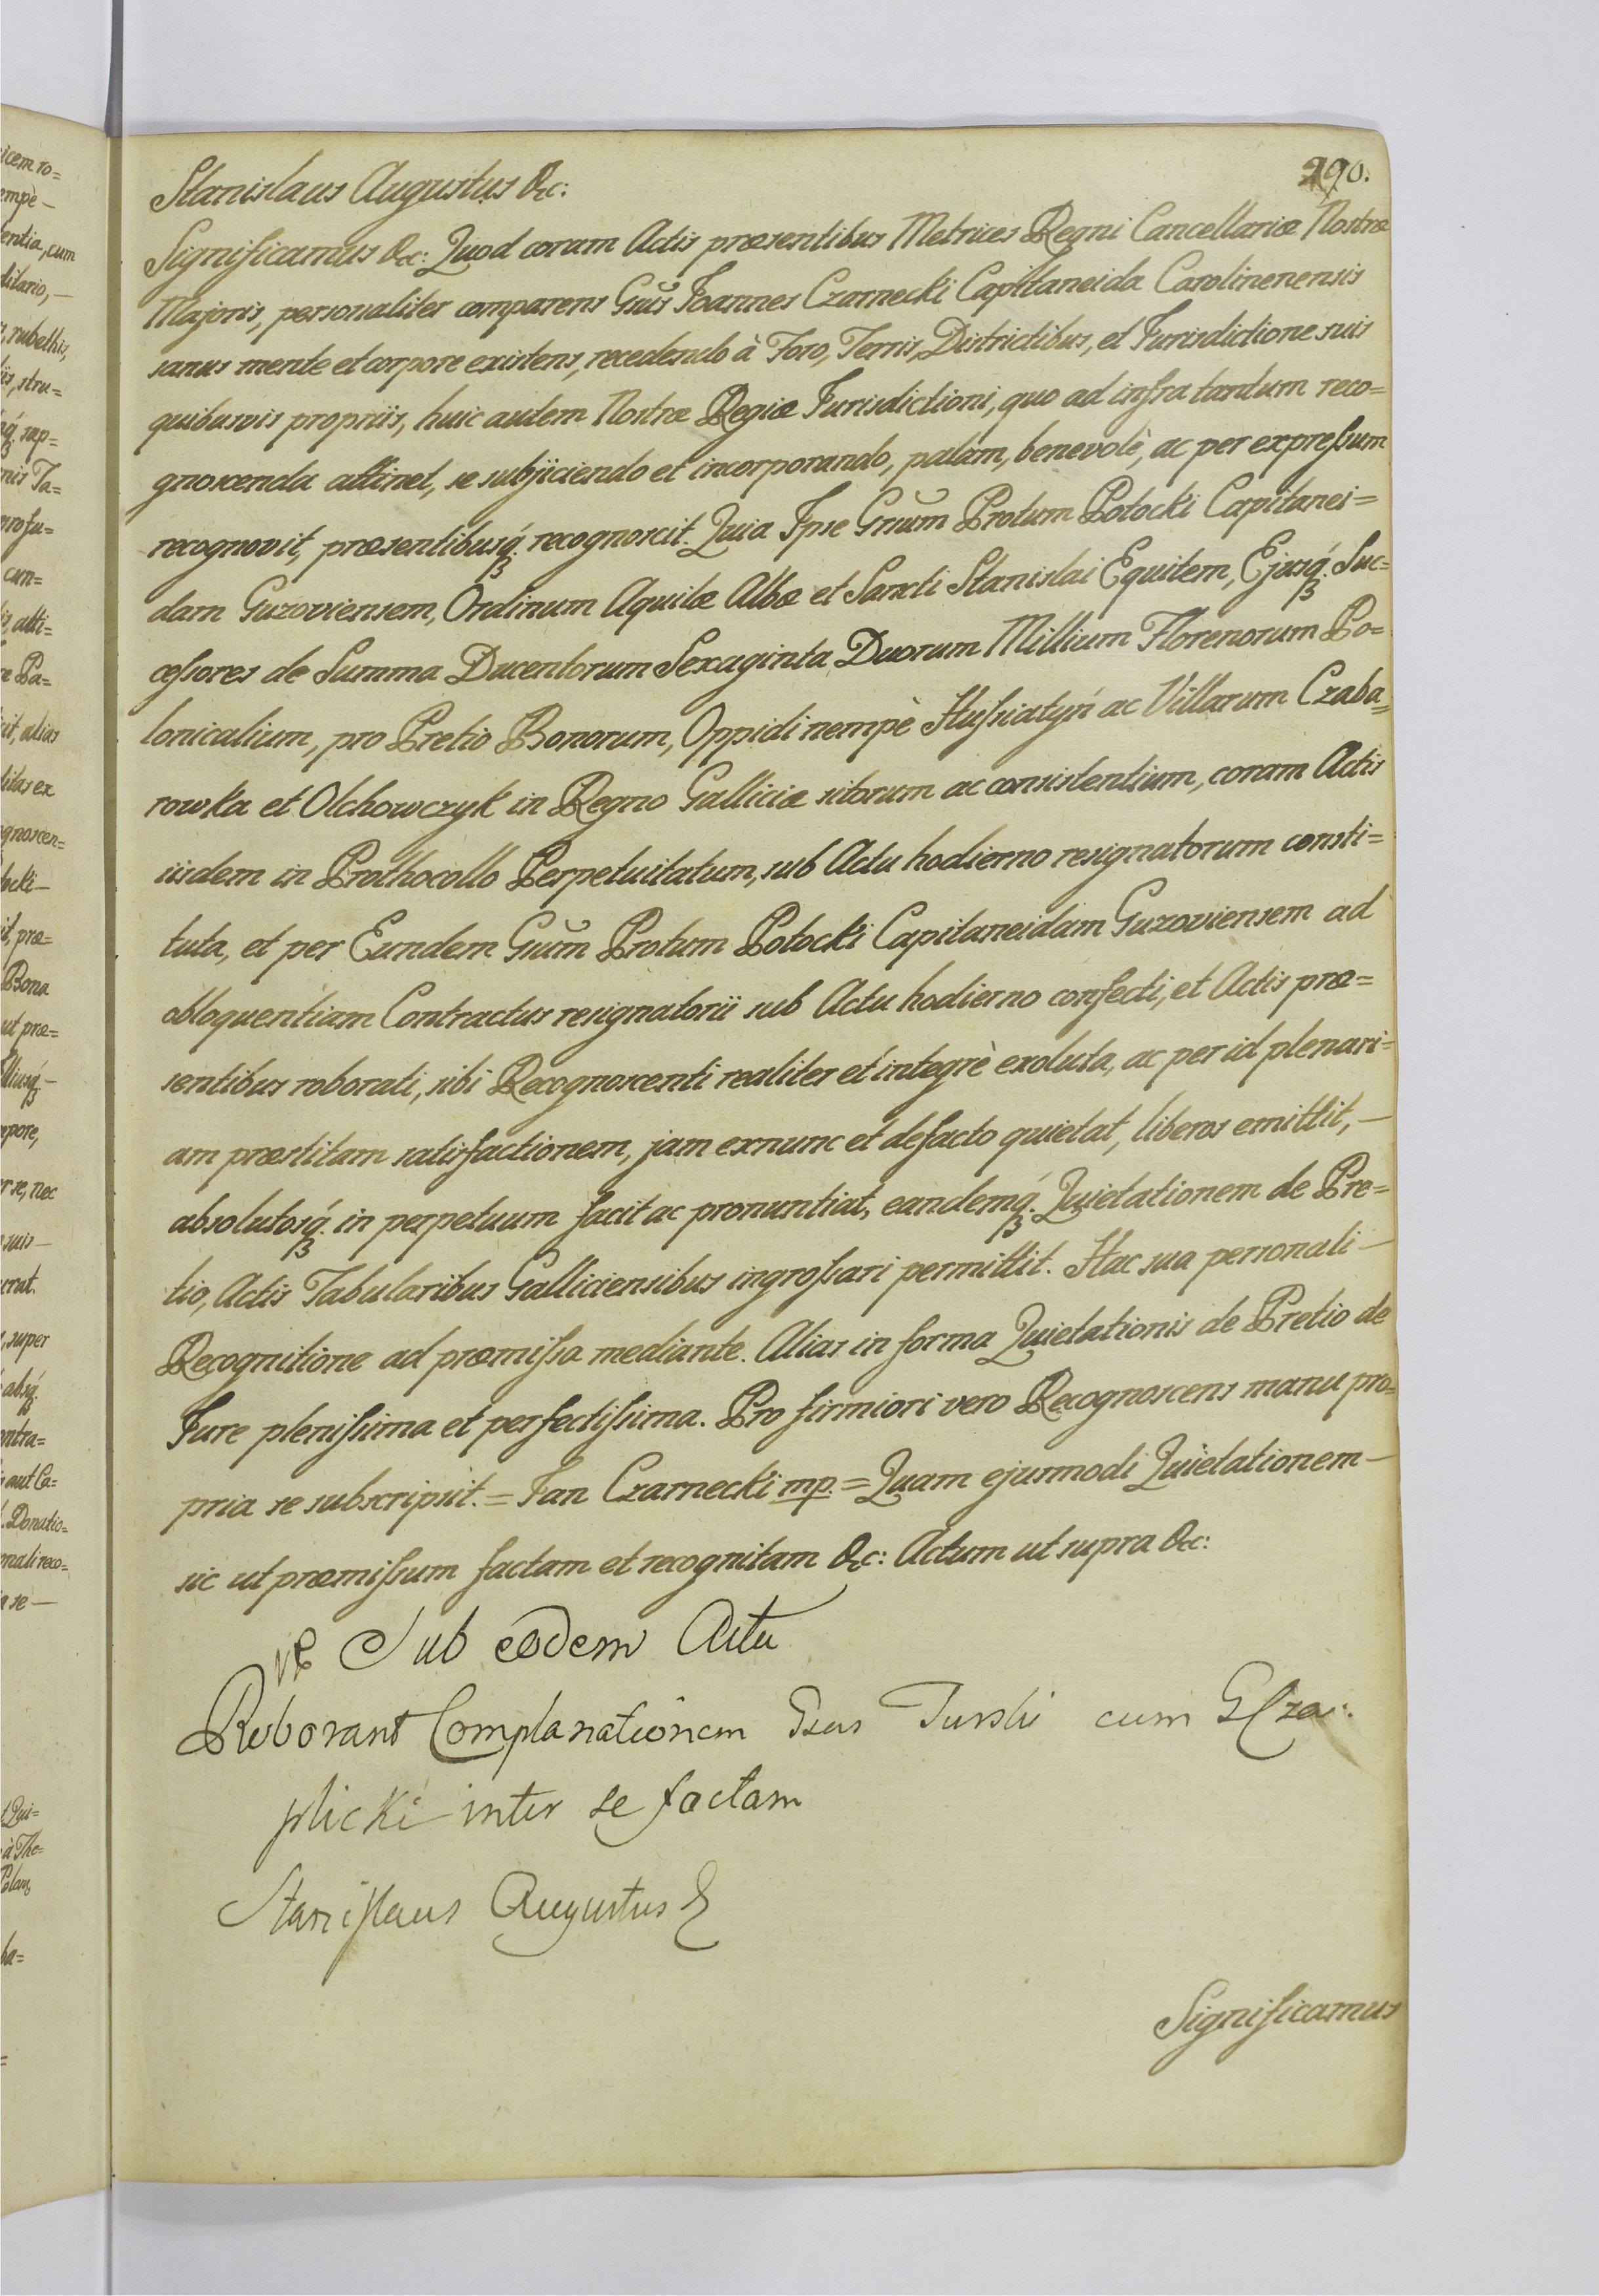 290.
Stanislaus Augustus &c:
Significamus &c: Quod coram Actis præsentibus Metrices Regni Cancellariæ Nostræ
Majoris, personaliter comparens Gsūs Joannes Czarnecki Capitaneida Carolinenensis
sanus mente et corpore existens, recedendo à Foro, Terris, Districtibus, et Jurisdictione suis
quibusvis propriis, huic autem Nostræ Regiæ Jurisdictioni, quo ad infra tantum reco=
gnoscenda attinet, se subjiciendo et incorporando, palàm, benevolè, ac per expreſsum
recognovit, præsentibusq́ʒ recognoscit. Quia Ipse Gsum Protum Potocki Capitanei=
dam Guzoviensem, Ordinum Aquilæ Albæ et Sancti Stanislai Equitem, Ejusq́ʒ Suc=
ceſsores de Summa Ducentorum Sexaginta Duorum Millium Florenorum Po=
lonicalium, pro Pretio Bonorum, Oppidi nempè Huſsiatyń ac Villarum Czaba=
rowka et Olchowczyk in Regno Galliciæ sitorum ac consistentium, coram Actis
iisdem in Prothocollo Perpetuitatum, sub Actu hodierno resignatorum consti=
tuta, et per Eundem Gsum Protum Potocki Capitaneidam Guzoviensem ad
obloquentiam Contractus resignatorii sub Actu hodierno confecti, et Actis præ=
sentibus roborati, sibi Recognoscenti realiter et integrè exoluta, ac per id plenari=
am præstitam satisfactionem, jam exnunc et defacto quietat, liberos emittit, —
absolutosq́ʒ in perpetuum facit ac pronuntiat, eandemq́ʒ Quietationem de Pre=
tio, Actis Tabularibus Galliciensibus ingroſsari permittit. Hac sua personali —
Recognitione ad præmiſsa mediante. Alias in forma Quietationis de Pretio de
Jure pleniſsima et perfectiſsima. Pro firmiori vero Recognoscens manu pro=
pria se subscripsit. = Jan Czarnecki mp. = Quam ejusmodi Quietationem —
sic ut præmiſsum factam et recognitam &c: Actum ut supra &c:
Sub eodem Actu
Roborant Complanationem Turski cum GCza:
plicki inter se factam
Stanislaus Augustus
Significamus